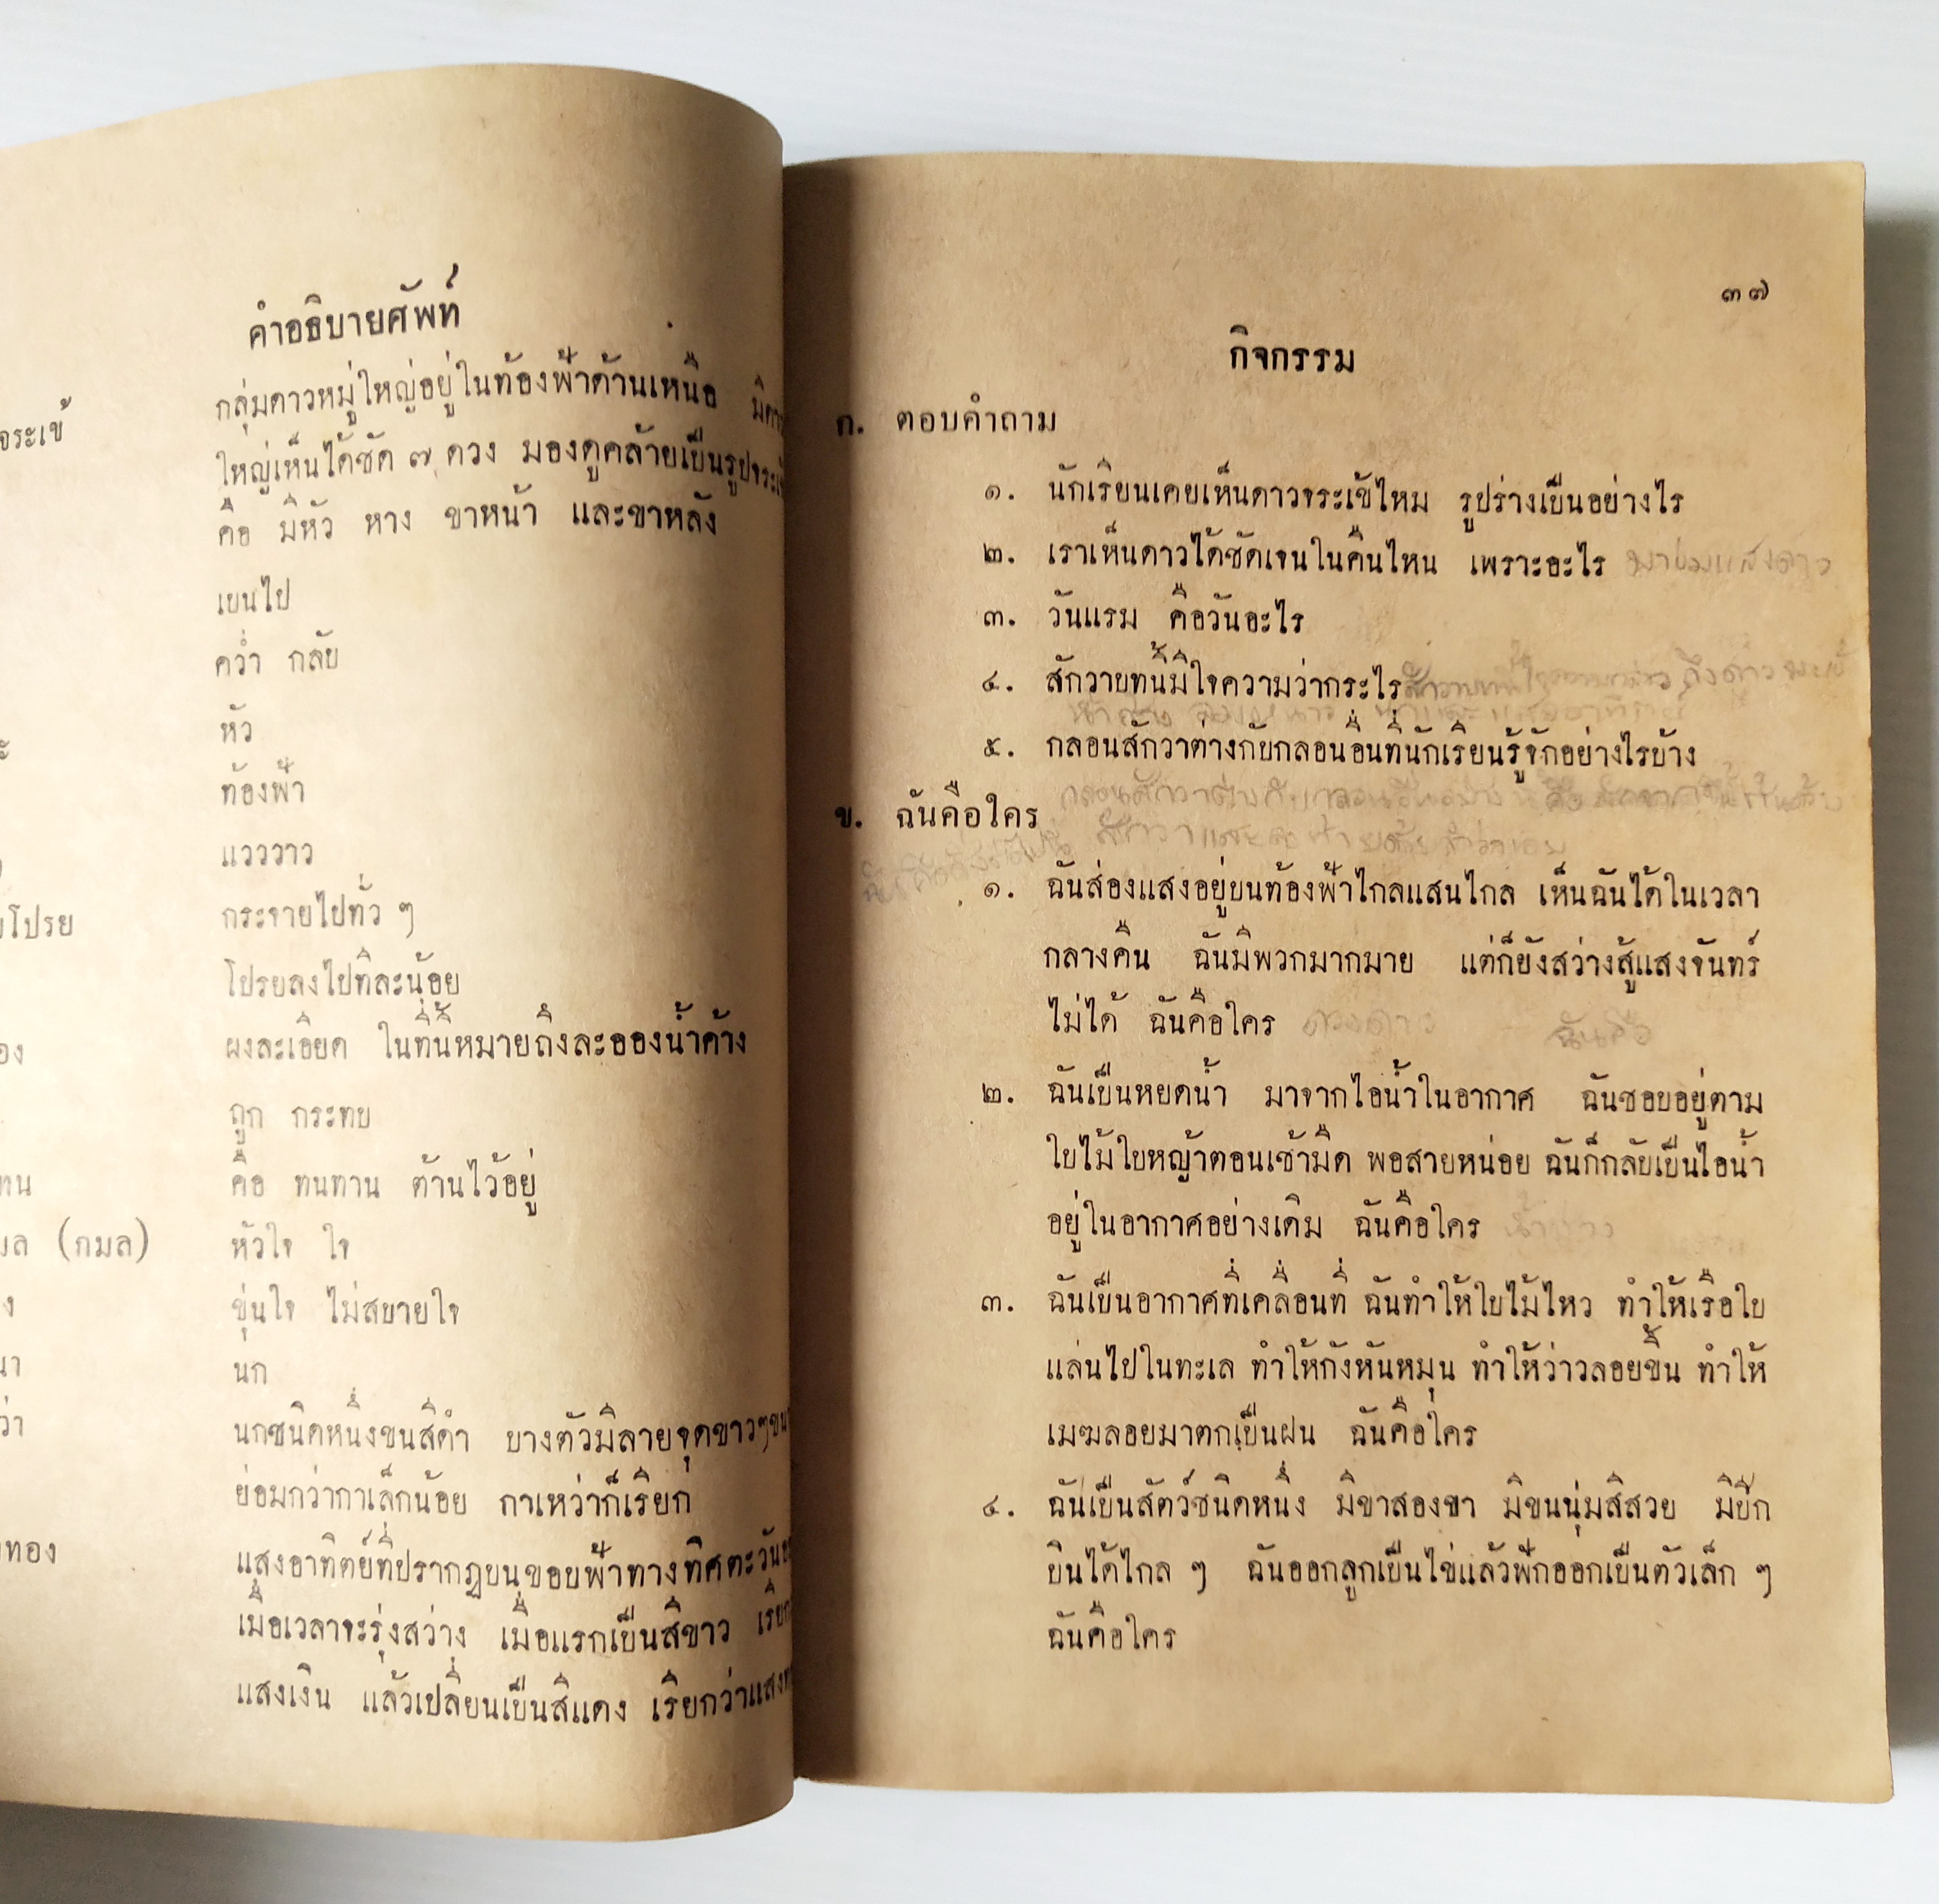 คำอธิบายศัพท์
จระเข้
กลุ่มดาวหมู่ใหญ่อยู่ในท้องฟ้าด้านเหนือ
ใหญ่เห็นได้ชัด ๗ ดวง มองดูคล้ายเป็นรูป
คือ มีหัว หาง ขาหน้า และขาหลัง
เบนไป
คว่ำ กลับ
หัว
ท้องฟ้า
แวววาว
โปรย
กระจายไปทั่ว ๆ
โปรยลงไปทีละน้อย
ผงละเอียด ในที่นี้หมายถึงละอองน้ำค้าง
ถูก กระทบ
คือ ทนทาน ต้านไว้อยู่
(กมล)
หัวใจ ใจ
ขุ่นใจ ไม่สบายใจ
นก
นกชนิดหนึ่งขนสีดำ บางตัวมีลายจุดขาวๆ
ย่อมกว่ากาเล็กน้อย กาเหว่าก็เรียก
ทอง
แสงอาทิตย์ที่ปรากฏบนขอบฟ้าทางทิศตะวัน
เมื่อเวลาจะรุ่งสว่าง เมื่อแรกเป็นสีขาว
แสงเงิน แล้วเปลี่ยนเป็นสีแดง เรียกว่าแสง
๓๗
กิจกรรม
ก. ตอบคำถาม
๑. นักเรียนเคยเห็นดาวจระเข้ไหม รูปร่างเป็นอย่างไร
๒. เราเห็นดาวได้ชัดเจนในคืนไหน เพราะอะไร
๓. วันแรม คือวันอะไร
๔. สักวาบทนี้มีใจความว่ากระไร
๕. กลอนสักวาต่างกับกลอนอื่นที่นักเรียนรู้จักอย่างไรบ้าง
ข. ฉันคือใคร
๑. ฉันส่องแสงอยู่บนท้องฟ้าไกลแสนไกล เห็นฉันได้ในเวลา
กลางคืน ฉันมีพวกมากมาย แต่ก็ยังสว่างสู้แสงจันทร์
ไม่ได้ ฉันคือใคร ดวงดาว ฉันคือ
๒. ฉันเป็นหยดน้ำ มาจากไอน้ำในอากาศ ฉันชอบอยู่ตาม
ใบไม้ใบหญ้าตอนเช้ามืด พอสายหน่อย ฉันก็กลับเป็นไอน้ำ
อยู่ในอากาศอย่างเดิม ฉันคือใคร
๓. ฉันเป็นอากาศที่เคลื่อนที่ ฉันทำให้ใบไม้ไหว ทำให้เรือใบ
แล่นไปในทะเล ทำให้กังหันหมุน ทำให้ว่าวลอยขึ้น ทำให้
เมฆลอยมาตกเป็นฝน ฉันคือใคร
๔. ฉันเป็นสัตว์ชนิดหนึ่ง มีขาสองขา มีขนนุ่มสีสวย มีปีก
บินได้ไกล ๆ ฉันออกลูกเป็นไข่แล้วฟักออกเป็นตัวเล็ก ๆ
ฉันคือใคร